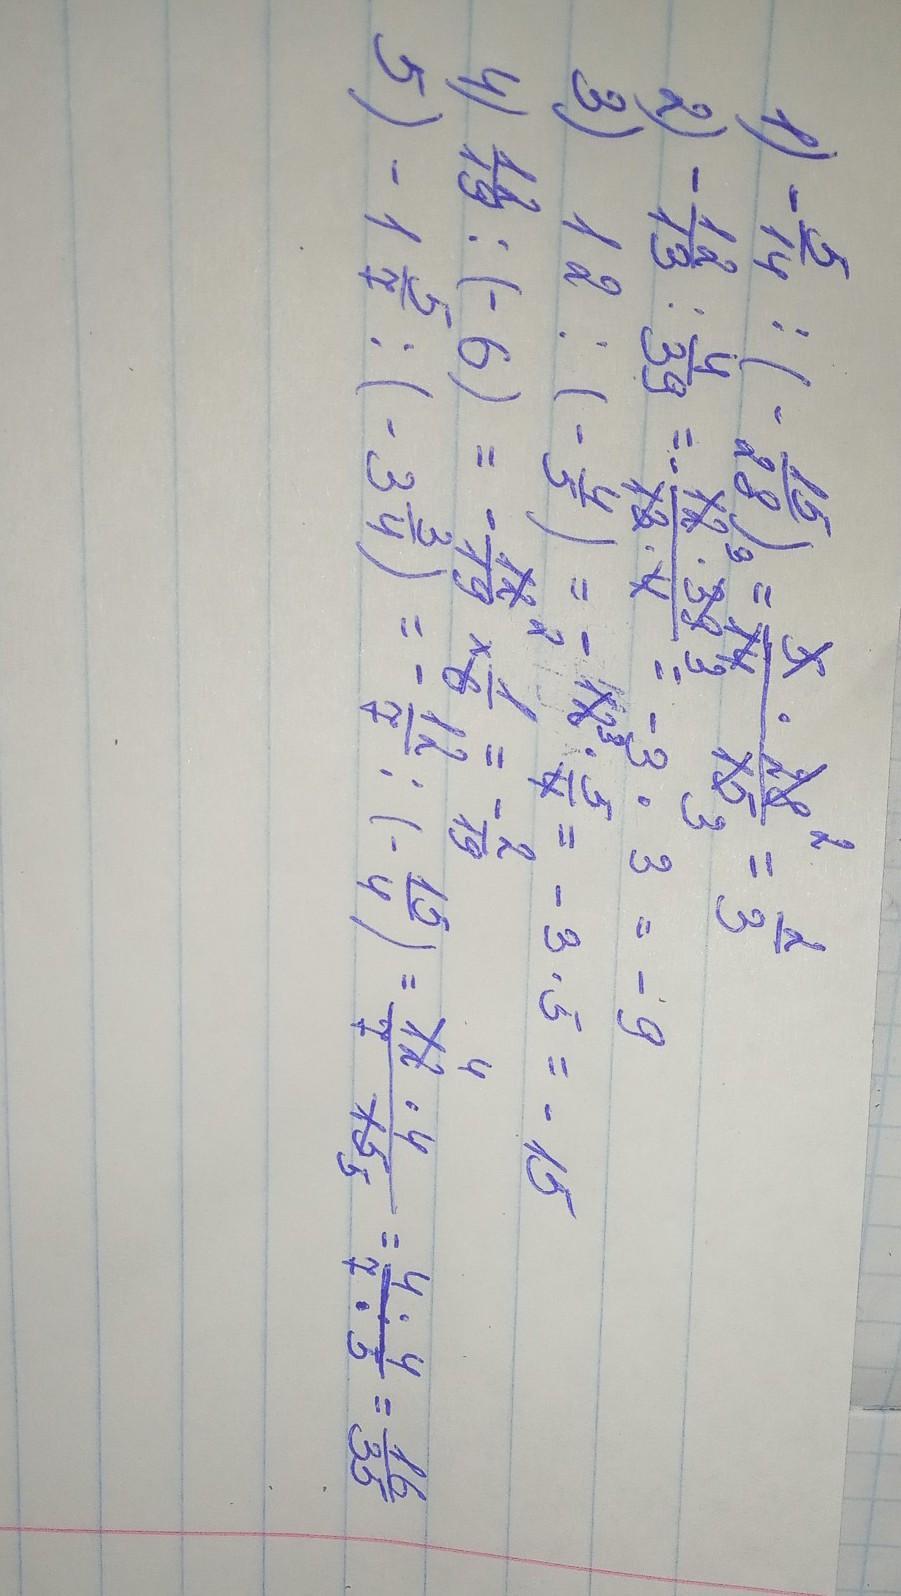 1) -5/14 : (-15/28) = 5 · 28 2 / 14 15 3 = 2/3
2) -12/13 : 4/39 = - 12 3 · 39 3 / 13 · 4 = -3 · 3 = -9
3) 12 : (-4/5) = - 12 3 · 5/4 = -3 · 5 = -15
4) 12/19 : (-6) = - 12 2 / 19 × 1/6 = -2/19
5) -1 5/7 : (-3 3/4) = -12/7 : (-15/4) = 12 4 · 4 / 7 15 5 = 4 · 4 / 7 · 5 = 16/35